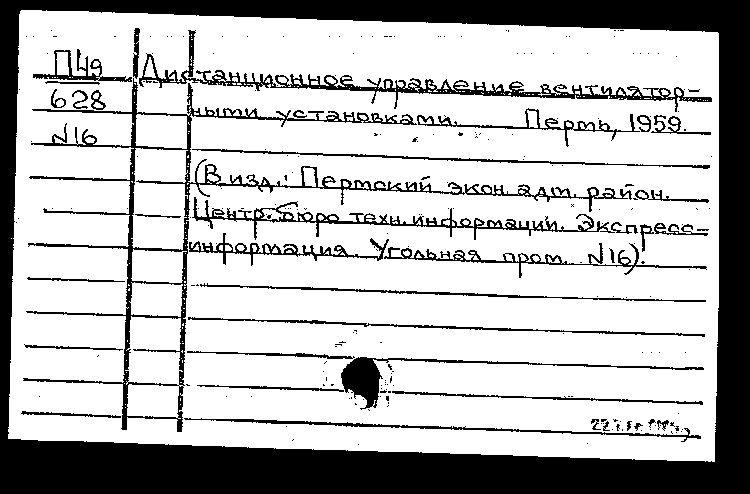 П49 Дистанционное управление вентилятор-
628 ными установками. Пермь, 1959.
N16
(В изд.: Пермский экон. адм. район.
Центр. бюро техн. информации. Экспресс-
информация. Угольная пром. N16).